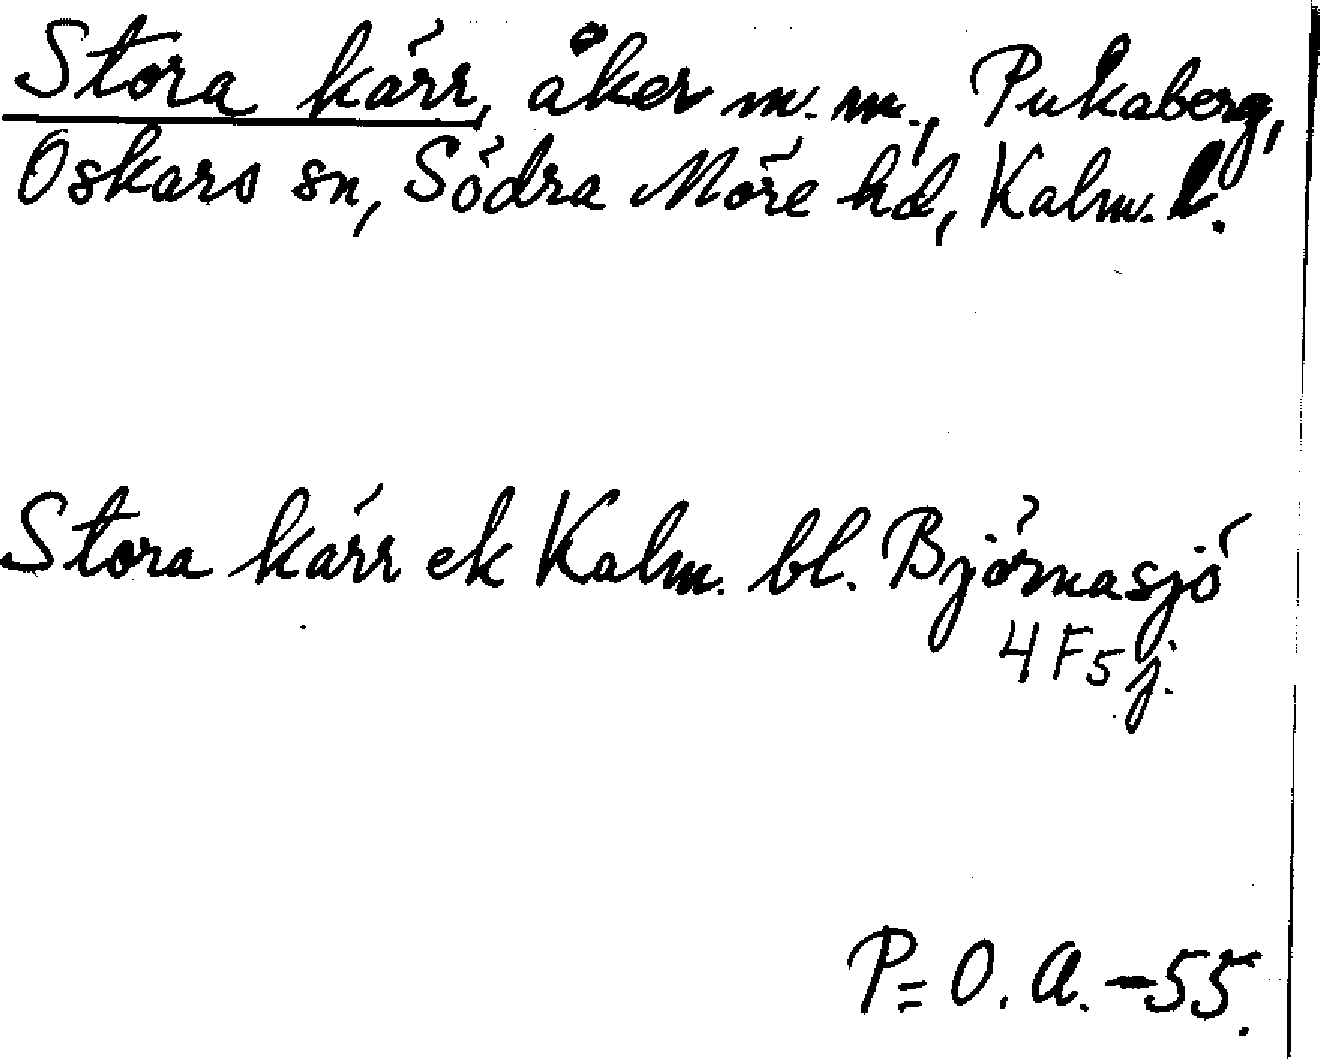 Stora kärr, åker m.m., Pukaberg,
Oskars sn, Södra Möre hd, Kalm. l.
Stora kärr ek Kalm. bl. Björnasjö
4 F 5 j.
P=O. A. -55.